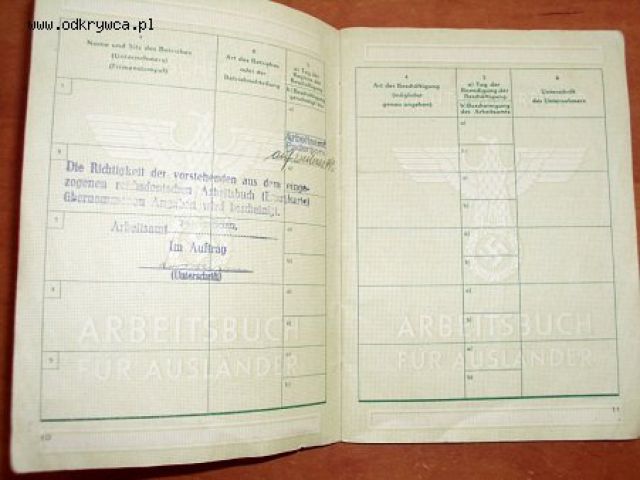 www.odkrywca.pl
Name und Sitz des Betriebes
(Unternehmers)
(Firmenstempel)
2
Art des Betriebes
oder der
Betriebsabteilung
3
a) Tag der
Beginn der
Beschäftigung
Arbeitsamt
Die Richtigkeit der vorstehenden aus dem einge-
zogenen reichsdeutschen Arbeitsbuch (Ersatzkarte)
übernommenen Angaben wird bescheinigt.
Arbeitsamt
Im Auftrag
(Unterschrift)
a)
b)
a)
b)
ARBEITSBUCH
FÜR AUSLÄNDER
10
4
Art der Beschäftigung
(möglichst
genau angeben)
5
a) Tag der
Beendigung der
Beschäftigung
b) Bescheinigung
des Arbeitsamts
6
Unterschrift
des Unternehmers
a)
b)
a)
b)
a)
b)
a)
b)
a)
b)
ARBEITSBUCH
FÜR AUSLÄNDER
11